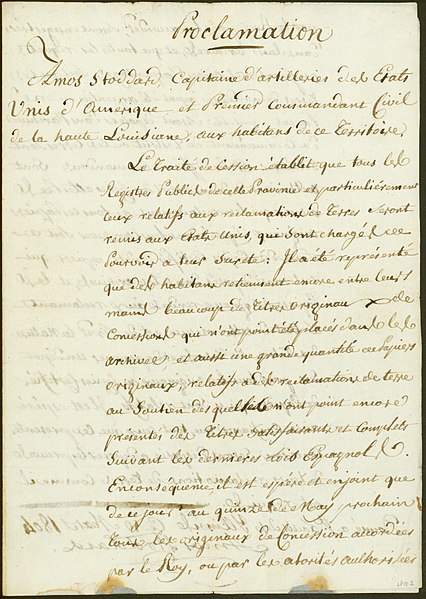 Proclamation
Amos Stoddard, Capitaine d'artilleries des Etats
Unis d'Amerique et Premier Commandant Civil
de la haute Louisiane, aux habitans de ce Territoire,
Le Traité de Cession établit que tous les
Registres Publics de cette Province et particulièrement
ceux relatifs aux reclamations de Terres seront
remis aux Etats Unis, qui sont chargés de
Pourvoir a leur Sureté: Il a été représenté
que des habitans retiennent encore entre leurs
mains beaucoup de Titres originaux de
Concessions qui n'ont point été places dans les
archives, et aussi une grande quantité de Papiers
originaux, relatifs a des reclamations de terre
au Soutien desquelles n'ont point encore
présentés des Titres Satisfaisants et Complets
Suivant les dernieres loix Espagnoles.
En consequence il est espéré et enjoint que
de ce jour au quinze de May prochain
tous les originaux de Concession accordées
par le Roy, ou par les atorités authorisées